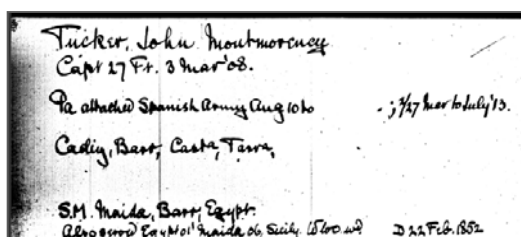 Tucker, John Montmorency
Capt 27 Ft. 3 Mar '08.
Pa attached Spanish Army Aug 10 to - ; 2/27 Mar to July '13.
Cadiz, Barr, Casta, Tarra,
S.M. Maida, Barr, Egypt.
Also served Egypt 01' Maida 06, Sicily. D 22 Feb. 1852